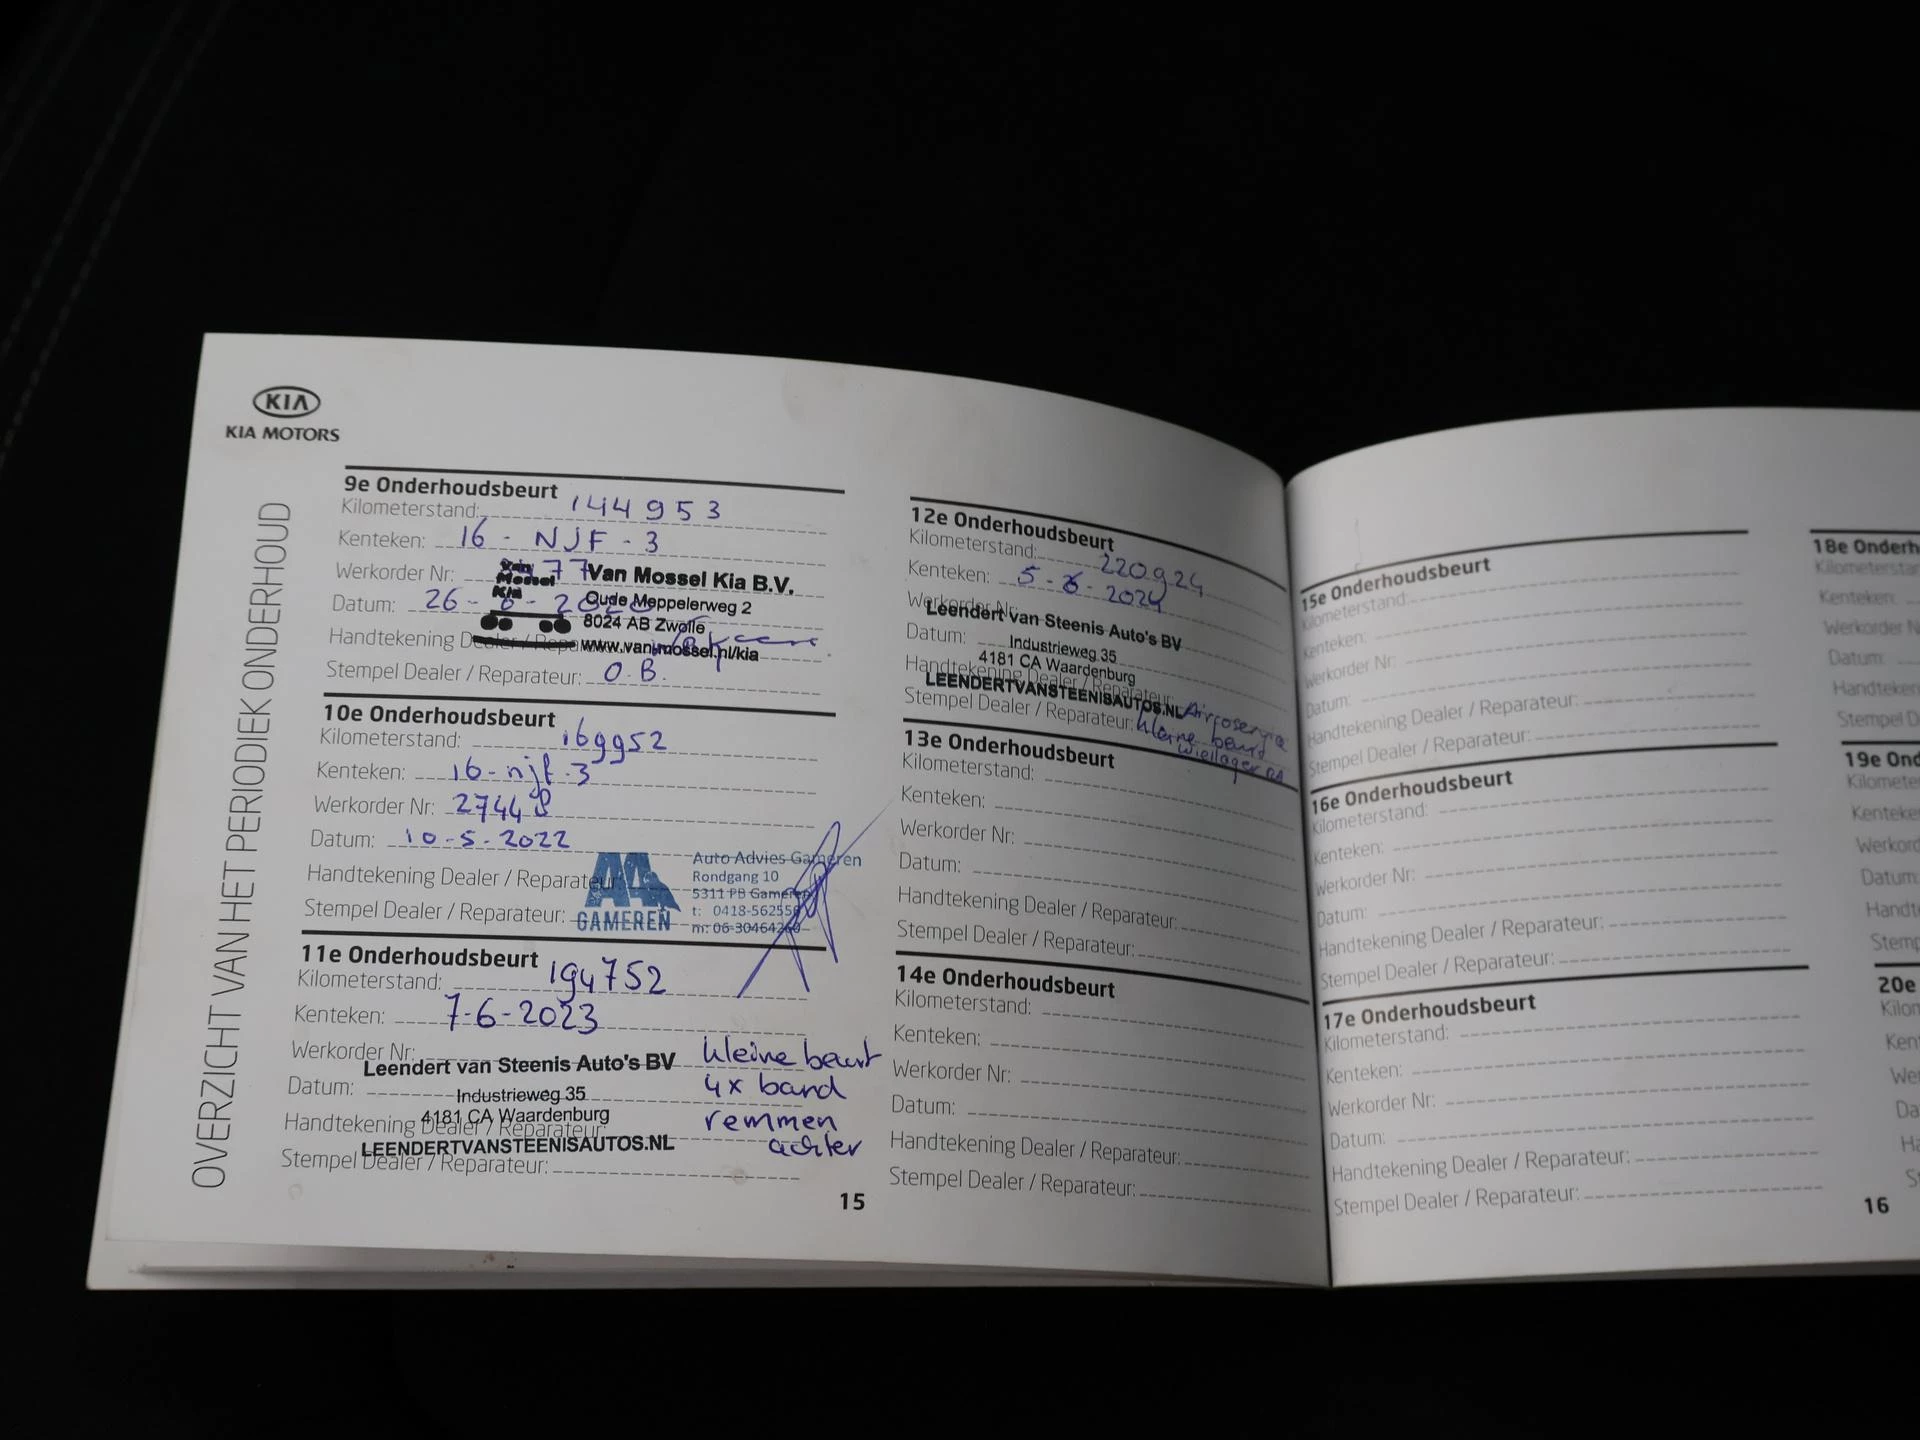 KIA
KIA MOTORS
OVERZICHT VAN HET PERIODIEK ONDERHOUD
9e Onderhoudsbeurt
Kilometerstand: 144953
Kenteken: 16 - NJF - 3
Werkorder Nr: 77
Van Mossel Kia B.V.
Van
Mossel
Kia
Datum: 26 - 6 - 2020
Oude Meppelerweg 2
8024 AB Zwolle
Handtekening Dealer / Reparateur:
www.vanmossel.nl/kia
Stempel Dealer / Reparateur: O.B.
10e Onderhoudsbeurt
Kilometerstand: 169952
Kenteken: 16-njf-3
Werkorder Nr: 27448
Datum: 10-5-2022
Handtekening Dealer / Reparateur:
Stempel Dealer / Reparateur:
AA
GAMEREN
Auto Advies Gameren
Rondgang 10
5311 PB Gameren
t: 0418-562556
m: 06-30464260
11e Onderhoudsbeurt
Kilometerstand: 194752
Kenteken: 7-6-2023
Werkorder Nr:
Leendert van Steenis Auto's BV
Datum:
Industrieweg 35
4181 CA Waardenburg
Handtekening Dealer / Reparateur:
LEENDERTVANSTEENISAUTOS.NL
Stempel Dealer / Reparateur:
kleine beurt
4x band
remmen
achter
12e Onderhoudsbeurt
Kilometerstand: 220924
Kenteken: 5-6-2024
Werkorder Nr:
Leendert van Steenis Auto's BV
Datum:
Industrieweg 35
4181 CA Waardenburg
Handtekening Dealer / Reparateur:
LEENDERTVANSTEENISAUTOS.NL
Stempel Dealer / Reparateur:
Aircoservice
kleine beurt
wiellager RA
13e Onderhoudsbeurt
Kilometerstand:
Kenteken:
Werkorder Nr:
Datum:
Handtekening Dealer / Reparateur:
Stempel Dealer / Reparateur:
14e Onderhoudsbeurt
Kilometerstand:
Kenteken:
Werkorder Nr:
Datum:
Handtekening Dealer / Reparateur:
Stempel Dealer / Reparateur:
15
15e Onderhoudsbeurt
Kilometerstand:
Kenteken:
Werkorder Nr:
Datum:
Handtekening Dealer / Reparateur:
Stempel Dealer / Reparateur:
16e Onderhoudsbeurt
Kilometerstand:
Kenteken:
Werkorder Nr:
Datum:
Handtekening Dealer / Reparateur:
Stempel Dealer / Reparateur:
17e Onderhoudsbeurt
Kilometerstand:
Kenteken:
Werkorder Nr:
Datum:
Handtekening Dealer / Reparateur:
Stempel Dealer / Reparateur:
18e Onderh
Kilometerstan
Kenteken:
Werkorder N
Datum:
Handteken
Stempel D
19e Ond
Kilometer
Kenteke
Werkord
Datum:
Handt
Stemp
20e
Kilon
Ken
We
Da
Ha
S
16